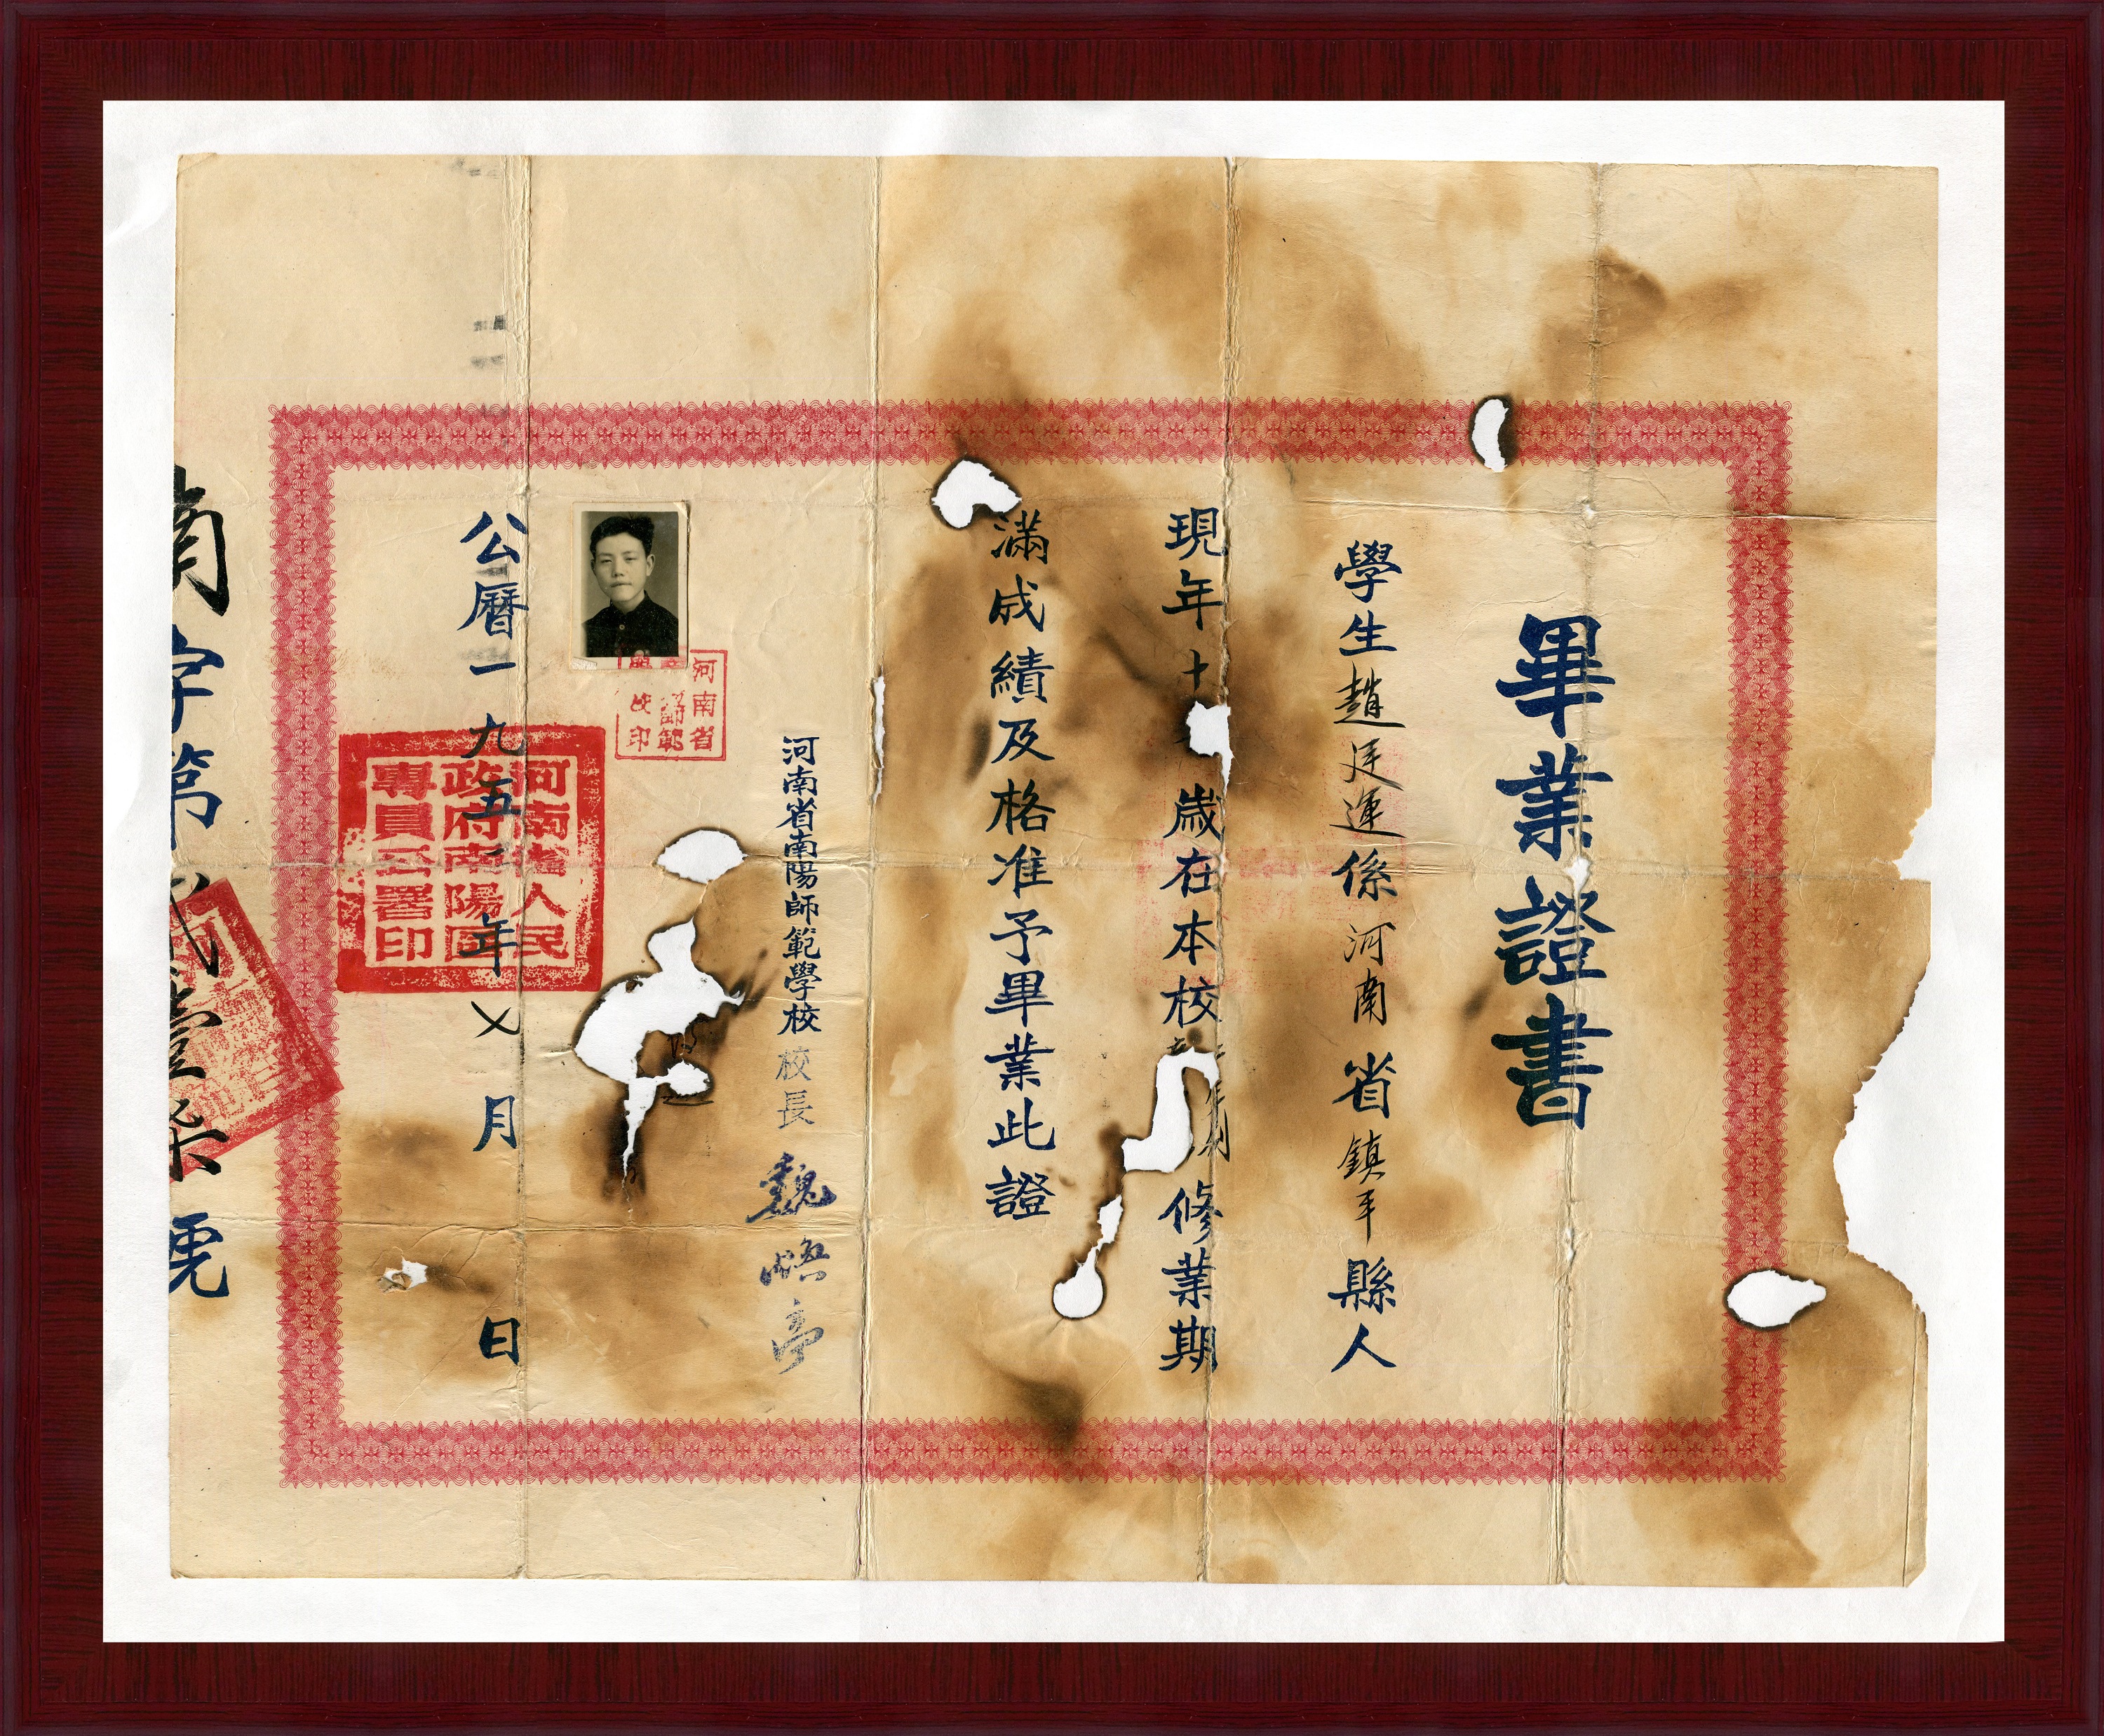 畢業證書
學生趙廷運係河南省鎮平縣人
現年十 歲在本校 修業期
滿成績及格准予畢業此證
河南省南陽師範學校校長魏 亭
河南省 師範 印
公曆一九五 年 月 日
河南省人民政府南陽區專員公署印
南字第 壹柒號